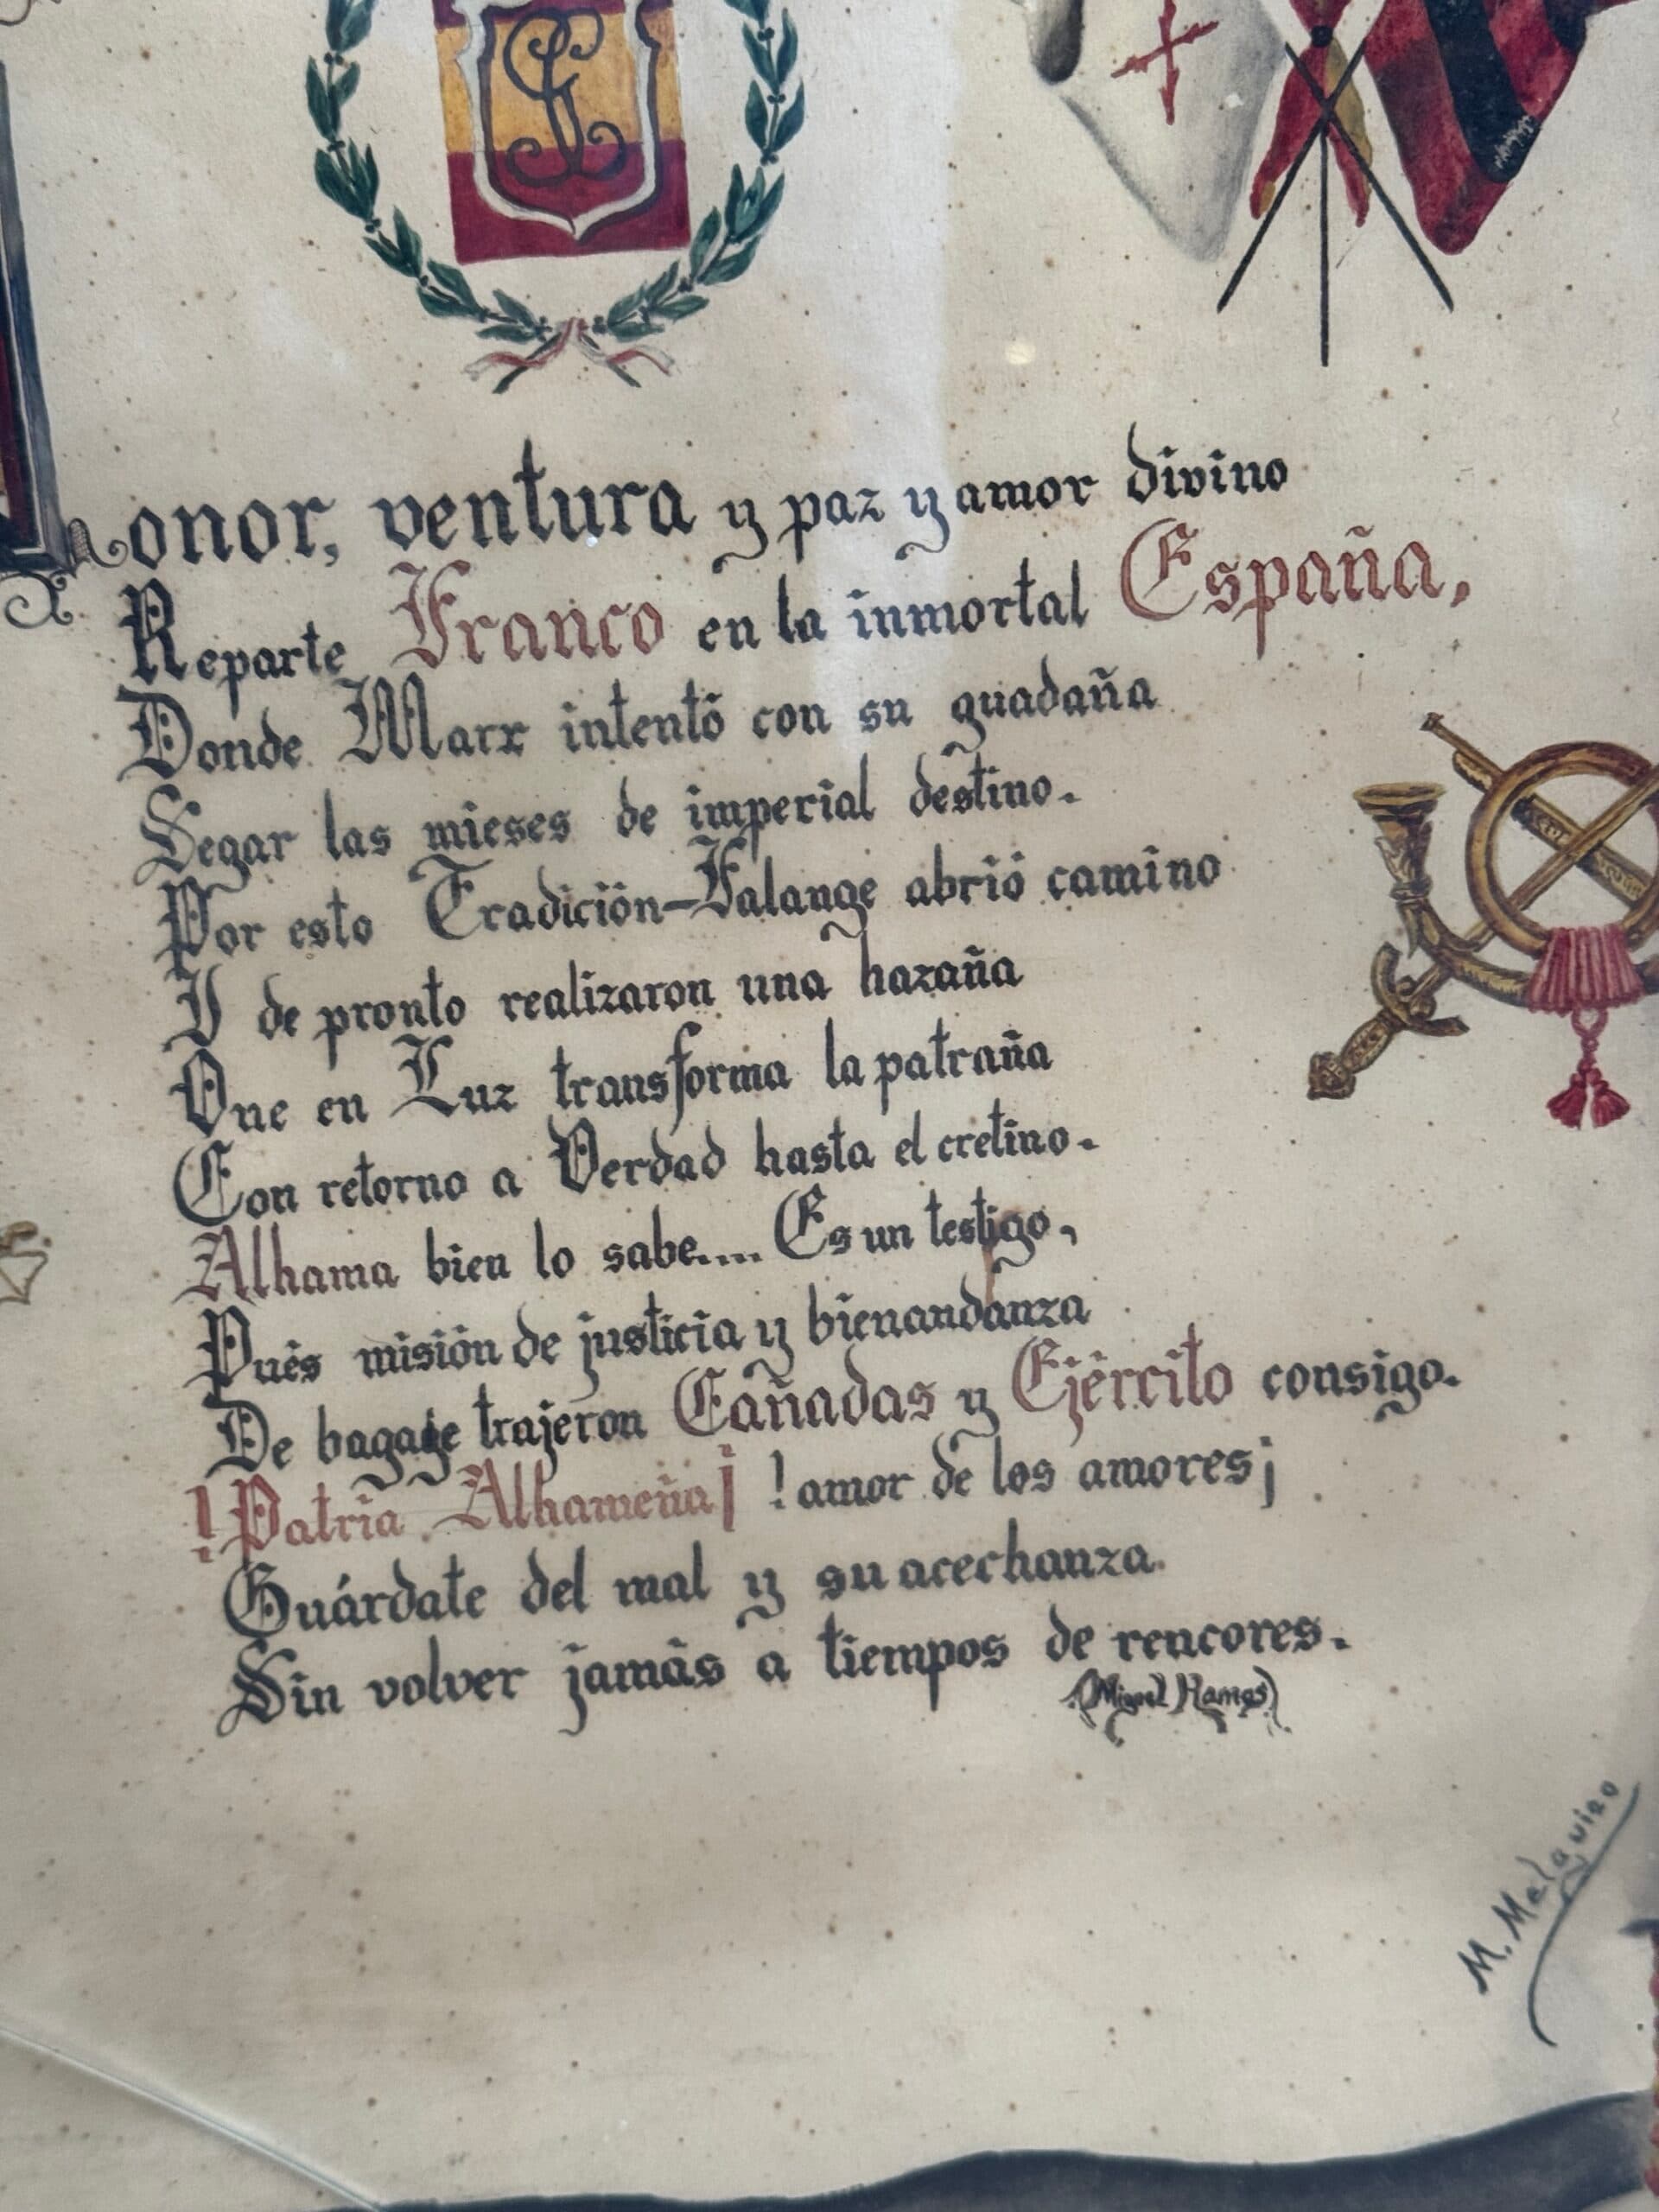 Honor, ventura y paz y amor divino
Reparte Franco en la inmortal España,
Donde Marx intentó con su guadaña
Segar las mieses de imperial destino.
Por esto Tradición-Falange abrió camino
Y de pronto realizaron una hazaña
Que en Luz transforma la patraña
Con retorno a Verdad hasta el cretino.
Alhama bien lo sabe.... Es un testigo,
Pués misión de justicia y bienandanza
De bagage trajeron Cañadas y Ejército consigo.
!Patria Alhameña¡ !amor de los amores¡
Guárdate del mal y su acechanza.
Sin volver jamás a tiempos de rencores.
(Miguel Ramos)
M. Malaguiro